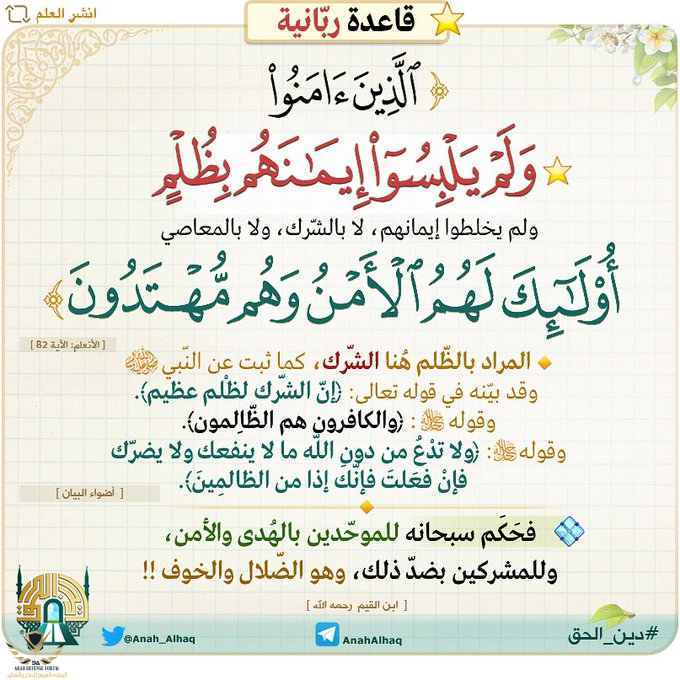 انشر العلم
قاعدة ربّانية
﴿ ٱلَّذِينَ ءَامَنُوا۟
وَلَمْ يَلْبِسُوٓا۟ إِيمَـٰنَهُم بِظُلْمٍ
ولم يخلطوا إيمانهم، لا بالشّرك، ولا بالمعاصي
أُو۟لَـٰٓئِكَ لَهُمُ ٱلْأَمْنُ وَهُم مُّهْتَدُونَ ﴾
[ الأنعام: الآية 82 ]
المراد بالظّلم هُنا الشّرك، كما ثبت عن النّبي ﷺ
وقد بيّنه في قوله تعالى: ﴿إنّ الشّرك لظُلم عظيم﴾.
وقوله ﷻ : ﴿والكافرون هم الظّالِمون﴾.
وقوله ﷻ: ﴿ولا تدْعُ من دونِ اللّه ما لا ينفعك ولا يضرّك
فإنْ فَعَلتَ فإنّك إذا من الظالمِينَ﴾.
[ أضواء البيان ]
فحَكَم سبحانه للموحّدين بالهُدى والأمن،
وللمشركين بضدّ ذلك، وهو الضّلال والخوف !!
[ ابن القيم رحمه الله ]
#دين_الحق
AnahAlhaq
@Anah_Alhaq
ARAB DEFENSE FORUM